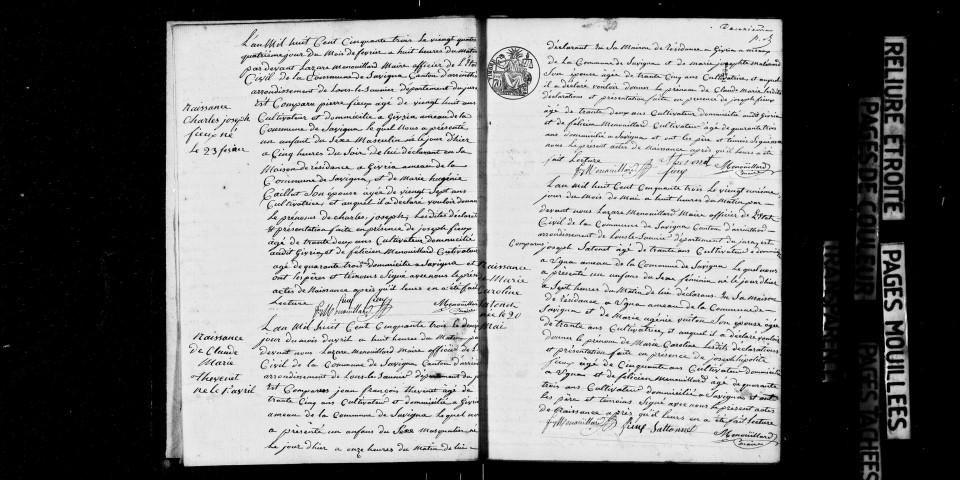 L'an Mil huit Cent Cinquante trois le vingt quatre
quatrième jour du Mois de fevrier a huit heures du Matin
par devant Lazare Menouillard Maire officier de L'Etat
Civil de la Commune de Savigna Canton d'arinthod
arrondissement de Lons-le-Saunier département du jura
Est Comparu pierre fieux agé de vingt huit ans
Cultivateur et domicilié a Givria ameau de la
Commune de Savigna le quel Nous a présenté
un anfant du Sexe Masculin né le jour d'hier
a Cinq heures du Soir de lui déclarant en Sa
Maison de résidance a Givria ameau de la
Commune de Savigna, et de Marie
Caillat Son épouse agée de vingt Sept ans
Cultivatrice, et auquel il a déclaré vouloir donner
le prénoms de charles, joseph, Lesdites déclaration
et présentation faite en présence de joseph fieux
agé de trante deux ans Cultivateur domicilié
audit Givria, et de félicien Menouillard Cultivateur
agé de quarante trois domicilié a Savigna et
ont les père et témoins Signé avec nous le présent
actes de Naissance après qu'il leurs en a été fait
Lecture
fieux fieux
fs Menouillard Menouillard
maire
Naissance
Charles joseph
fieux né
Le 23 fevrier
L'an Mil huit Cent Cinquante trois le deux
jour du mois d'avril a huit heures du Matin par
devant nous Lazare Menouillard Maire officier de l'Etat
Civil de la Commune de Savigna Canton d'arinthod
arrondissement de Lons-le-Saunier département du jura
Est Comparu jean françois thevenet agé de
trante Cinq ans Cultivateur et domicilié a Givria
ameau de la Commune de Savigna le quel nous
a présenté un anfans du Sexe Masqulin né
le jour d'hier a onze heures du Matin de lui
Naissance
de Claude
Marie
thevenet
né le 1er avril
déclarant En Sa Maison de résidance a Givria ameau
de la Commune de Savigna et de Marie josephte
Son épouse agé de trante Cinq ans Cultivatrice et auquel
il a déclaré vouloir donner le prénom de Claude Marie lesdites
déclarations et présentation faite en présence de joseph fieux
agé de trante deux ans Cultivateur domicilié audit Givria
et de félicien Menouillard Cultivateur agé de quarante trois
ans domicilié a Savigna et ont les père et témoins Signé avec
nous le présent actes de Naissance après qu'il leurs a été
fait Lecture
fs Menouillard fieux Menouillard
maire
L'an Mil huit Cent Cinquante trois Le vingt unième
jour du Mois de Mai a huit heures du Matin par
devant nous Lazare Menouillard Maire officier de l'Etat
Civil de la Commune de Savigna Canton d'arinthod
arrondissement de Lons-le-Saunier département du jura, est
Comparus joseph Salonet agé de trante ans Cultivateur a domicilié
a Vogna ameau de la Commune de Savigna Le quel nous
a présenté un enfans du Sexe féminin né le jour d'hier
a Sept heures du Matin de lui déclarant En Sa Maison
de résidance a Vogna ameau de la Commune de
Savigna et de Marie Eugénie Son épouse agé
de trante ans Cultivatrice, et auquel il a déclaré vouloir
donner le prénom de Marie Caroline Lesdits déclarations
et présentation faite en présence de joseph hipolite
fieux age de Cinquante ans Cultivateur domicilié
a Vogna et de félicien Menouillard agé de quarante
trois ans Cultivateur domicilié a Savigna et ont
les père et témoins Signé avec nous le présent actes
de Naissance après qu'il leurs en a été fait lecture
fs Menouillard fieux Menouillard
maire
Naissance
de Marie
Caroline
né le 20
Mai
RELIURE ETROITE
PAGES DE COULEUR
PAGES MOUILLEES
PAGES TACHEES